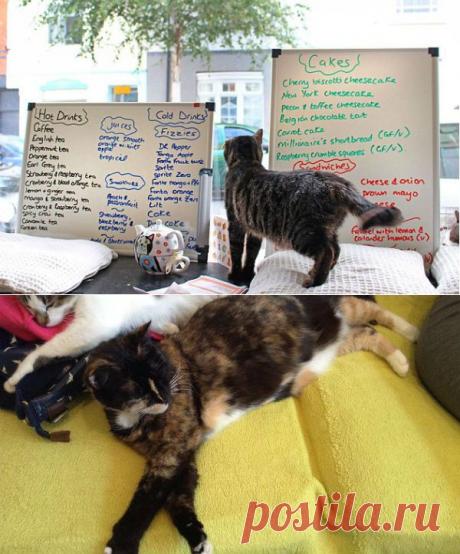 Hot Drinks
Coffee
English tea
Peppermint tea
Orange tea
Earl Grey tea
Strawberry & raspberry tea
Cranberry & blood orange tea
Lemon & ginger tea
mango & strawberry tea
cranberry & Raspberry tea
Spicy chai tea
Camomile tea
Juices
Orange smooth
orange w bits
apple
tropical
Smoothies
Peach &
Passionfruit
Strawberry,
blackberry &
raspberry
Cold Drinks
Fizzies
DR Pepper
Tango Apple
Fanta fruit twist
Sprite
Sprite Zero
Fanta orange
Fanta orange Zero
Lilt
Coke
Cakes
Cherry biscotti cheesecake
New York cheesecake
Pecan & toffee cheesecake
Belgian chocolate tart
Carrot cake
millionaire's shortbread (GF/V)
Raspberry crumble squares (GF/V)
Sandwiches
cheese & onion
prawn mayo
cheese
falafel with lemon &
coriander humous (v)
postila.ru